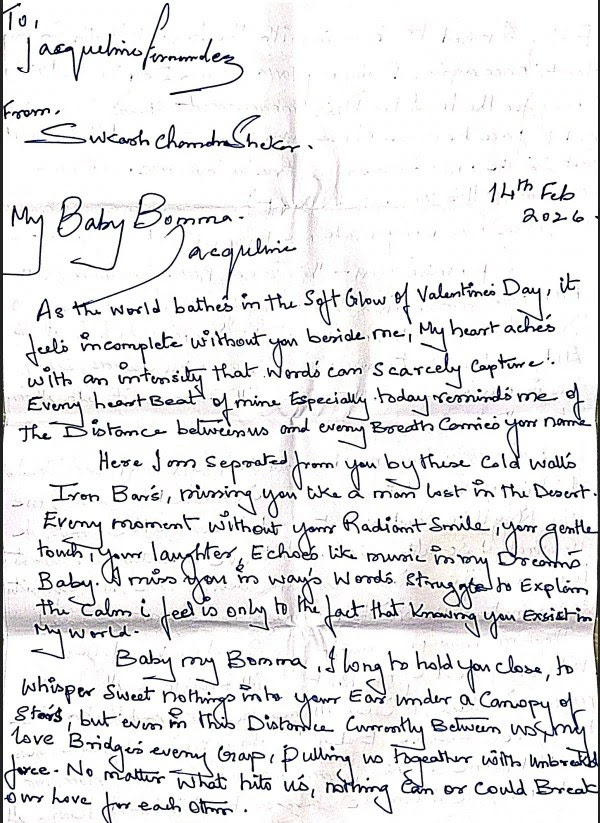 To,
Jacqueline Fernandez
From.
Sukash Chandra Shekar.
14th Feb
2026.
My Baby Bomma.
Jacqueline
As the world bathes in the Soft Glow of Valentine's Day, it
feels incomplete without you beside me, My heart aches
with an intensity that words can scarcely capture.
Every heart Beat of mine Especially today reminds me of
the Distance between us and every Breath Carries your name
Here I am seprated from you by these Cold walls
Iron Bars, missing you like a man lost in the Desert.
Every moment without your Radiant Smile, your gentle
touch, your laughter, Echoes like music in my Dreams
Baby. I miss you in ways Words Struggle to Explain
the Calm i feel is only to the fact that Knowing you Exsist in
My World.
Baby my Bomma, I long to hold you close, to
whisper Sweet nothings into your Ear under a Canopy of
Stars, but even in this Distance Currently Between us, my
love Bridges every Gap, Pulling us together with
force. No matter what hits us, nothing Can or Could Break
our love for each other.